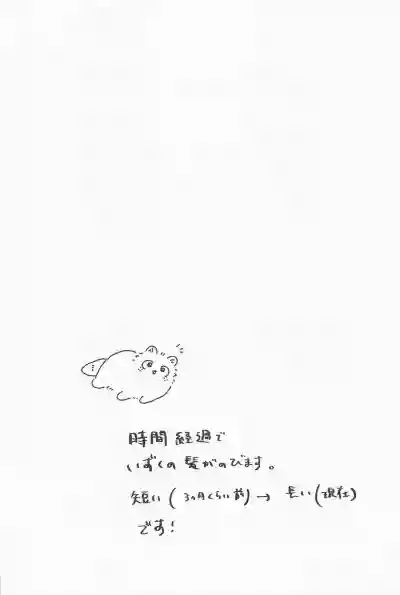 時間経過で
いずくの髪がのびます。
短い(3ヵ月くらい前)→ 長い(現在)
です!